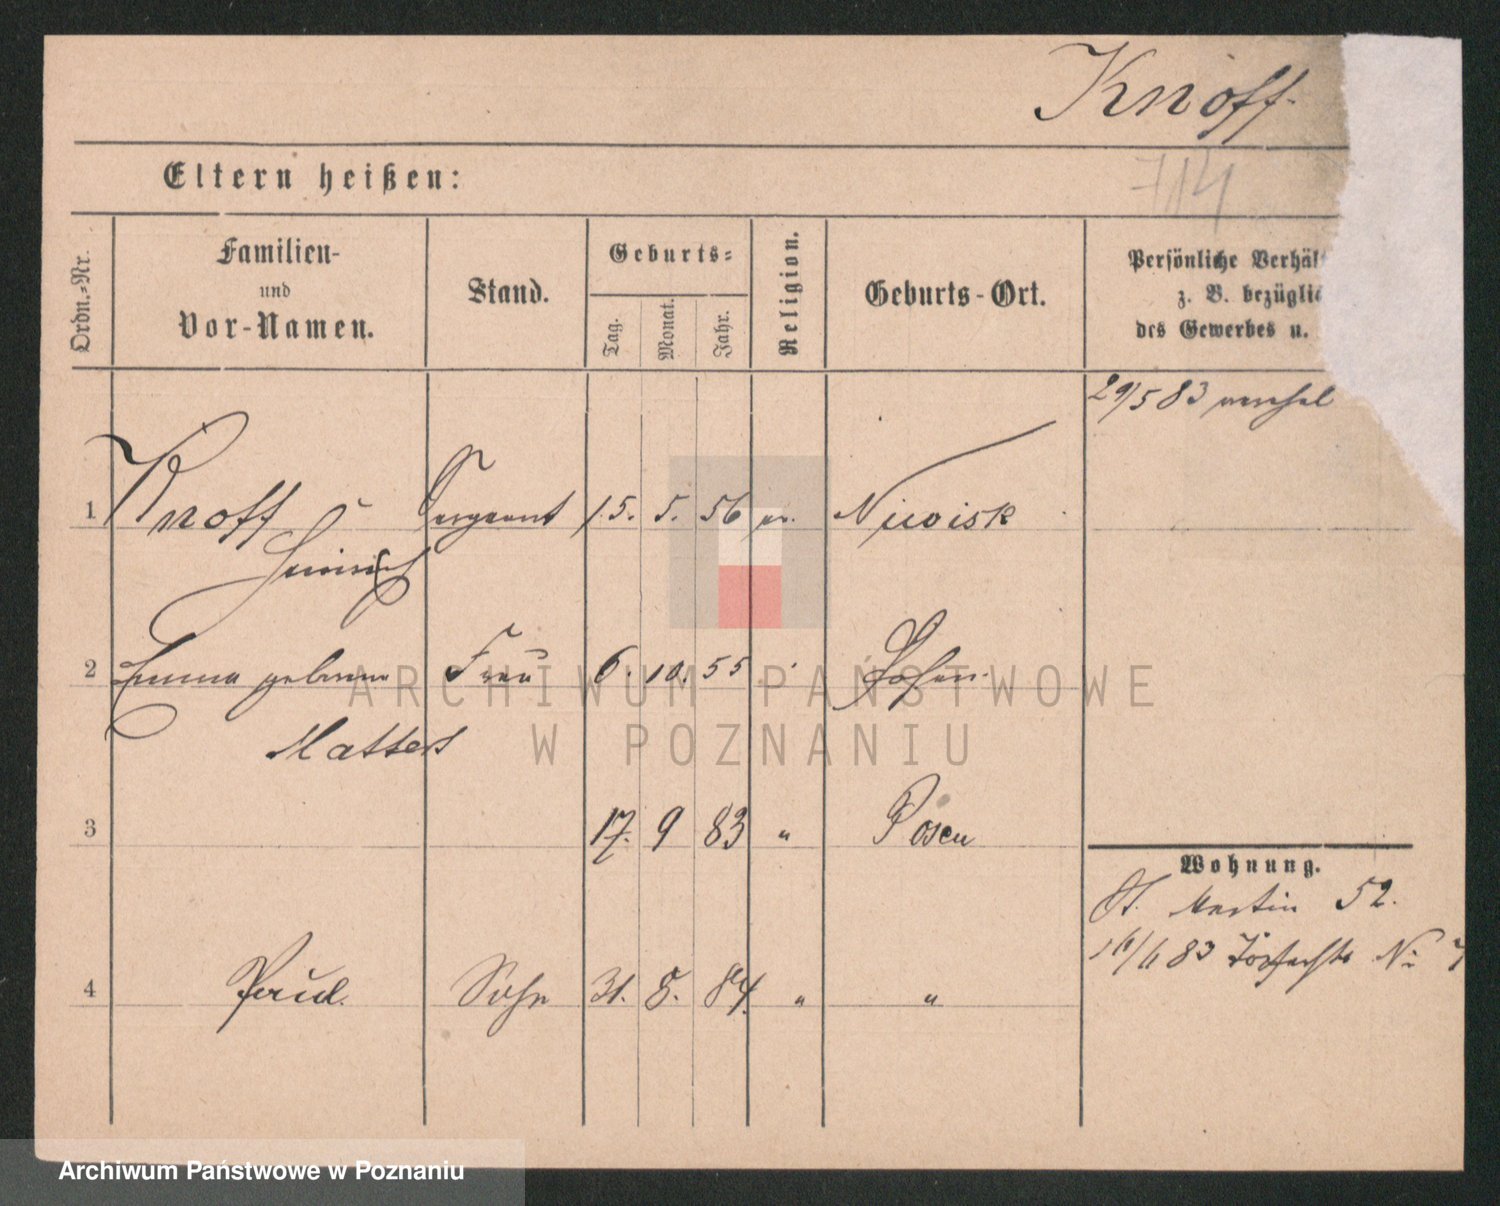 Knoff.
714
Eltern heißen:
Ordn.-Nr.
Familien-
und
Vor-Namen.
Stand.
Geburts-
Tag.
Monat.
Jahr.
Religion.
Geburts-Ort.
Persönliche Verhält
z. B. bezüglic
des Gewerbes u.
29/5 83
1 Knoff Sergeant 15. 5. 56 ev.
Heinrich
2 Emma geborene Frau 6. 10. 55
Mattert
3 17. 9 83 " Posen
Wohnung.
St. Martin 52.
4 Paul. Sohn 31. 8. 84. " "
83 No 7
ARCHIWUM PAŃSTWOWE
W POZNANIU
Archiwum Państwowe w Poznaniu